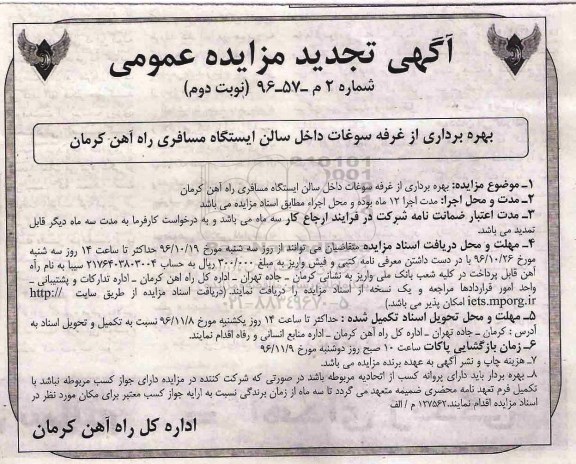 آگهی تجدید مزایده عمومی
شماره ۲ م ـ۵۷ـ۹۶ (نوبت دوم)
بهره برداری از غرفه سوغات داخل سالن ایستگاه مسافری راه آهن کرمان
۱ـ موضوع مزایده: بهره برداری از غرفه سوغات داخل سالن ایستگاه مسافری راه آهن کرمان
۲ـ مدت و محل اجرا: مدت اجرا ۱۲ ماه بوده و محل اجراء مطابق اسناد مزایده می باشد
۳ـ مدت اعتبار ضمانت نامه شرکت در فرایند ارجاع کار سه ماه می باشد و به درخواست کارفرما به مدت سه ماه دیگر قابل
تمدید می باشد.
۴ـ مهلت و محل دریافت اسناد مزایده متقاضیان می توانند از روز سه شنبه مورخ ۹۶/۱۰/۱۹ حداکثر تا ساعت ۱۴ روز سه شنبه
مورخ ۹۶/۱۰/۲۶ با در دست داشتن معرفی نامه کتبی و فیش واریز به مبلغ ۳۰۰/۰۰۰ ریال به حساب ۲۱۷۶۴۰۳۸۰۳۰۰۴ سیبا به نام راه
آهن قابل پرداخت در کلیه شعب بانک ملی واریز به نشانی کرمان ـ جاده تهران ـ اداره کل راه آهن کرمان ـ اداره تدارکات و پشتیبانی ـ
واحد امور قراردادها مراجعه و یک نسخه از اسناد مزایده را دریافت نمایند.(دریافت اسناد مزایده از طریق سایت http://
iets.mporg.ir امکان پذیر می باشد)
۵ـ مهلت و محل تحویل اسناد تکمیل شده : حداکثر تا ساعت ۱۴ روز یکشنبه مورخ ۹۶/۱۱/۸ نسبت به تکمیل و تحویل اسناد به
آدرس : کرمان ـ جاده تهران ـ اداره کل راه آهن کرمان ـ اداره منابع انسانی و رفاه اقدام نمایند.
۶ـ زمان بازگشایی پاکات ساعت ۱۰ صبح روز دوشنبه مورخ ۹۶/۱۱/۹
۷ـ هزینه چاپ و نشر آگهی به عهده برنده مزایده می باشد.
۸ـ بهره بردار باید دارای پروانه کسب از اتحادیه مربوطه باشد در صورتی که شرکت کننده در مزایده دارای جواز کسب مربوطه نباشد با
تکمیل فرم تعهد نامه محضری ضمیمه متعهد می گردد تا سه ماه از زمان برندگی نسبت به ارایه جواز کسب معتبر برای مکان مورد نظر در
اسناد مزایده اقدام نمایند.۱۲۷۵۶۲ م / الف
اداره کل راه آهن کرمان